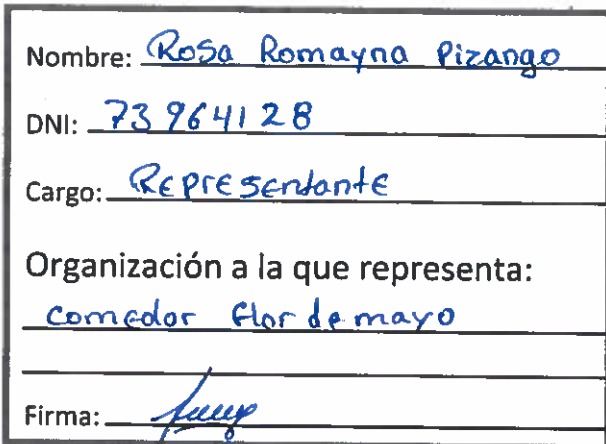 Nombre: Rosa Romayna Pizango
DNI: 73964128
Cargo: Representante
Organización a la que representa:
comedor flor de mayo
Firma: